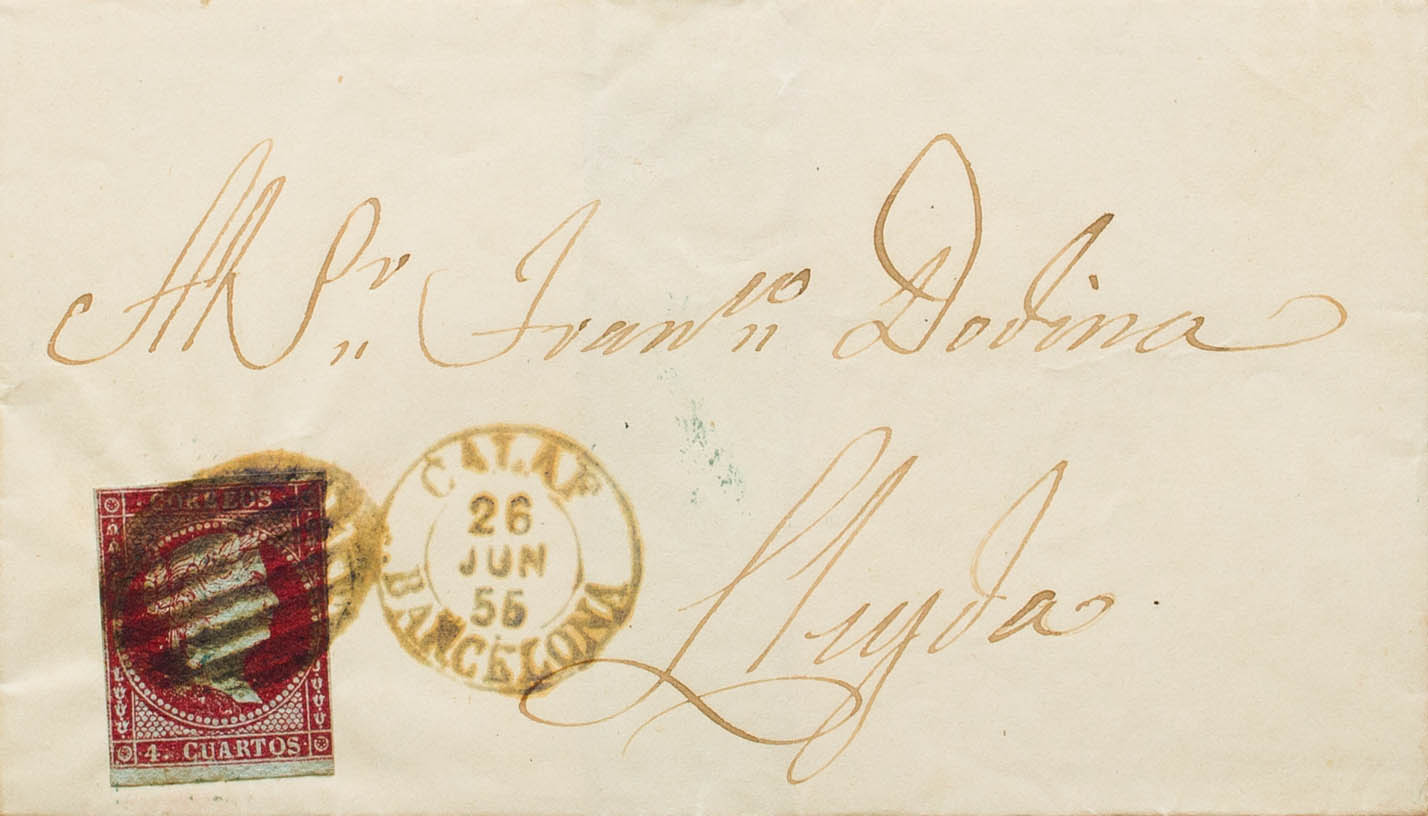 Al Sr. Franco Dodina
CALAF
26
JUN
55
BARCELONA
CORREOS
4. CUARTOS
Lleyda